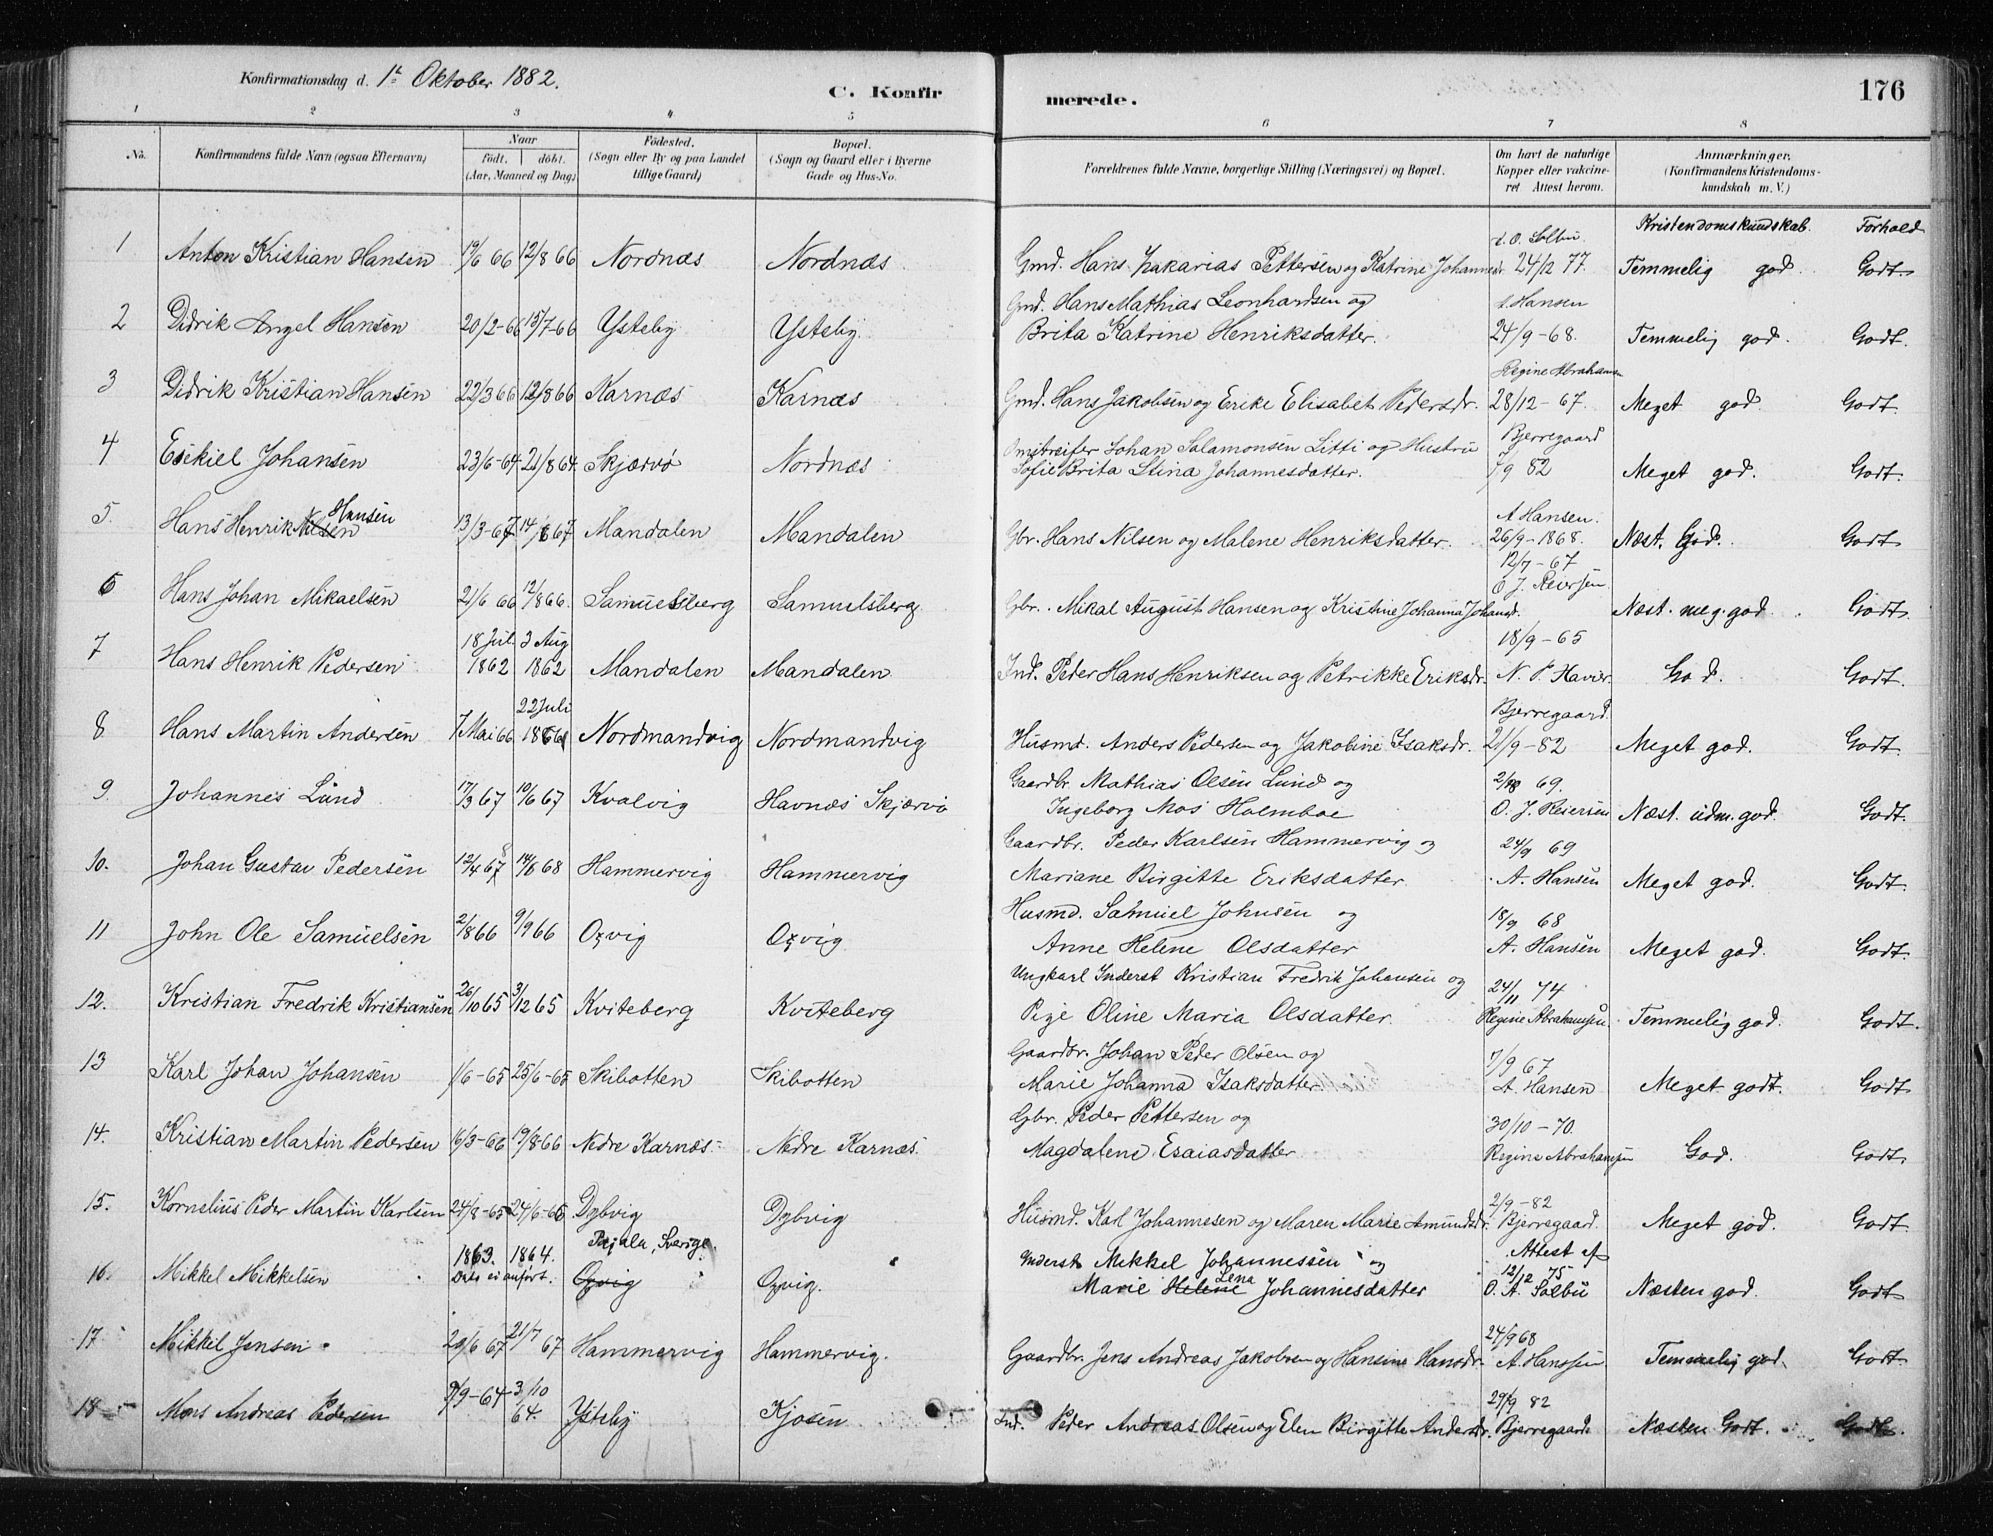 Konfirmationsdag d. 1ste Oktober 1882.
C. Konfirmerede.
176
1 2 3 4 5 6 7 8
No. Konfirmandens fulde Navn (ogsaa Efternavn) Naar födt. döbt. (Aar, Maaned og Dag) Födested. (Sogn eller By og paa Landet tillige Gaard) Bopæl. (Sogn og Gaard eller i Byerne Gade og Hus-No. Forældrenes fulde Navne, borgerlige Stilling (Næringsvei) og Bopæl. Om havt de naturlige Kopper eller vakcineret Attest herom. Anmærkninger. (Konfirmandens Kristendomskundskab m. V.)
Kristendomskundskab. Forhold
1 Anton Kristian Hansen 19/6 66 12/8 66 Nordnæs Nordnæs Gmd. Hans Zakarias Pettersen og Katrine Johannesdr. A. O. Solbu. 24/12 77. Temmelig god. Godt
2 Didrik Angel Hansen 20/2-66 15/7-66 Ysteby Ysteby. Gmd. Hans Mathias Leonhardsen og Brita Katrine Henriksdatter. A. Hansen 24/9-68. Temmelig god. Godt.
3 Didrik Kristian Hansen 22/3 66 12/8 66 Karnæs Karnæs Gmd. Hans Jakobsen og Erike Elisabet Pedersdr. Regine Abrahamsen 28/12-67. Meget god. Godt.
4 Esekiel Johansen 23/6-64. 21/8 64. Skjærvø Nordnæs Omstreifer Johan Salamonsen Litti og Hustru Sofie Brita Stina Johannesdatter. Bjerregaard 7/9 82 Meget god. Godt.
5. Hans Henrik Nilsen Hansen 13/3-67 14/6 67 Mandalen Mandalen Gbr. Hans Nilsen og Malene Henriksdatter. A Hansen. 26/9-1868. Næst. God. Godt
6 Hans Johan Mikaelsen 21/6 66 12/8 66. Samuelsberg Samuelsberg. Gbr. Mikal August Hansen og Kristine Johanna Johansd. 12/7-67 O J. Reiersen Næst. meg. god. Godt.
7 Hans Henrik Pedersen 18 Jul. 1862 3 Aug 1862 Mandalen Mandalen Ind. Peder Hans Henriksen og Petrikke Eriksdr. 18/9-65 N. P. Xavier. God. Godt.
8. Hans Martin Andersen 7 Mai 66 22 Juli 1866 Nordmandvig Nordmandvig Husmd. Anders Pedersen og Jakobine Isaksdr. Bjerregaard. 21/9-82 Meget god. Godt.
9. Johannes Lund 17/3 67 10/6 67 Kvalvig Havnæs Skjærvø Gaardbr. Mathias Olsen Lund og Ingeborg Mos Holmboe 69. O. J. Reiersen Næst. udm. god. Godt.
10. Johan Gustav Pedersen 12/4 67 8 14/6 68 Hammervig Hammervig Gaardbr. Peder Karlsen Hammervig og Mariane Birgitte Eriksdatter. 24/9 69 A. Hansen Meget god. Godt.
11 John Ole Samuelsen 2/8 66 9/9 66 Oxvig Oxvig Husmd. Samuel Johnsen og Anne Helene Olsdatter 18/9 68 A. Hansen Meget god. Godt
12. Kristian Fredrik Kristiansen 26/10 65 3/12 65 Kviteberg Kviteberg Ungkarl Inderst Kristian Fredrik Johansen og Pige Oline Maria Olsdatter. 24/11 74 Regine Abrahamsen. Temmelig god. Godt.
13 Karl Johan Johansen 1/6-65 25/6-65 Skibotten Skibotten Gaardbr. Johan Peder Olsen og Marie Johanna Isaksdatter. 7/9 67 A. Hansen Meget godt. Godt
14. Kristian Martin Pedersen 16/3-66 19/8-66 Nedre Karnæs. Nedre Karnæs. Gbr. Peder Pettersen og Magdalene Esaiasdatter 30/10-70. Regine Abrahamsen God. Godt.
15. Kornelius Peder Martin Karlsen 24/8-65 24/6-66 Dybvig Dybvig Husmd. Karl Johannesen og Maren Marie Amundsdr. 2/9-82 Bjerregaard. Meget god. Godt
16. Mikkel Mikkelsen 1863. 1864. Dato ei anført. Pajala, Sverige. Oxvig Oxvig. Inderst Mikkel Johannessen og Marie Helene Lena Johannesdatter Attest af 12/12 75 O. A. Solbu Næsten god. Godt
17 Mikkel Jensen 20/6 67 21/7 67 Hammervig Hammervig. Gaardbr. Jens Andreas Jakobsen og Hansine Hansdr. 24/9 68 A. Hanssen Temmelig god. Godt
18 Mons Andreas Pedersen 9/9-64 3/10 64. Ysteby Kjosen Ind. Peder Andreas Olsen og Elen Birgitte Andersdr. 29/9 82 Bjerregaard. Næsten Godt. Godt.